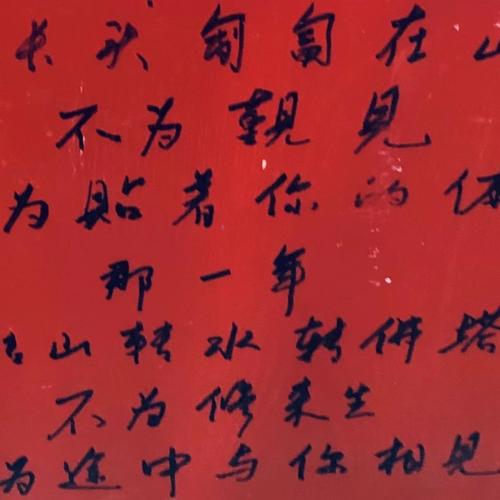 长头匍匐在
不为覲見
为貼着你的
那一年
山转水转佛塔
不为修来生
为途中与你相見